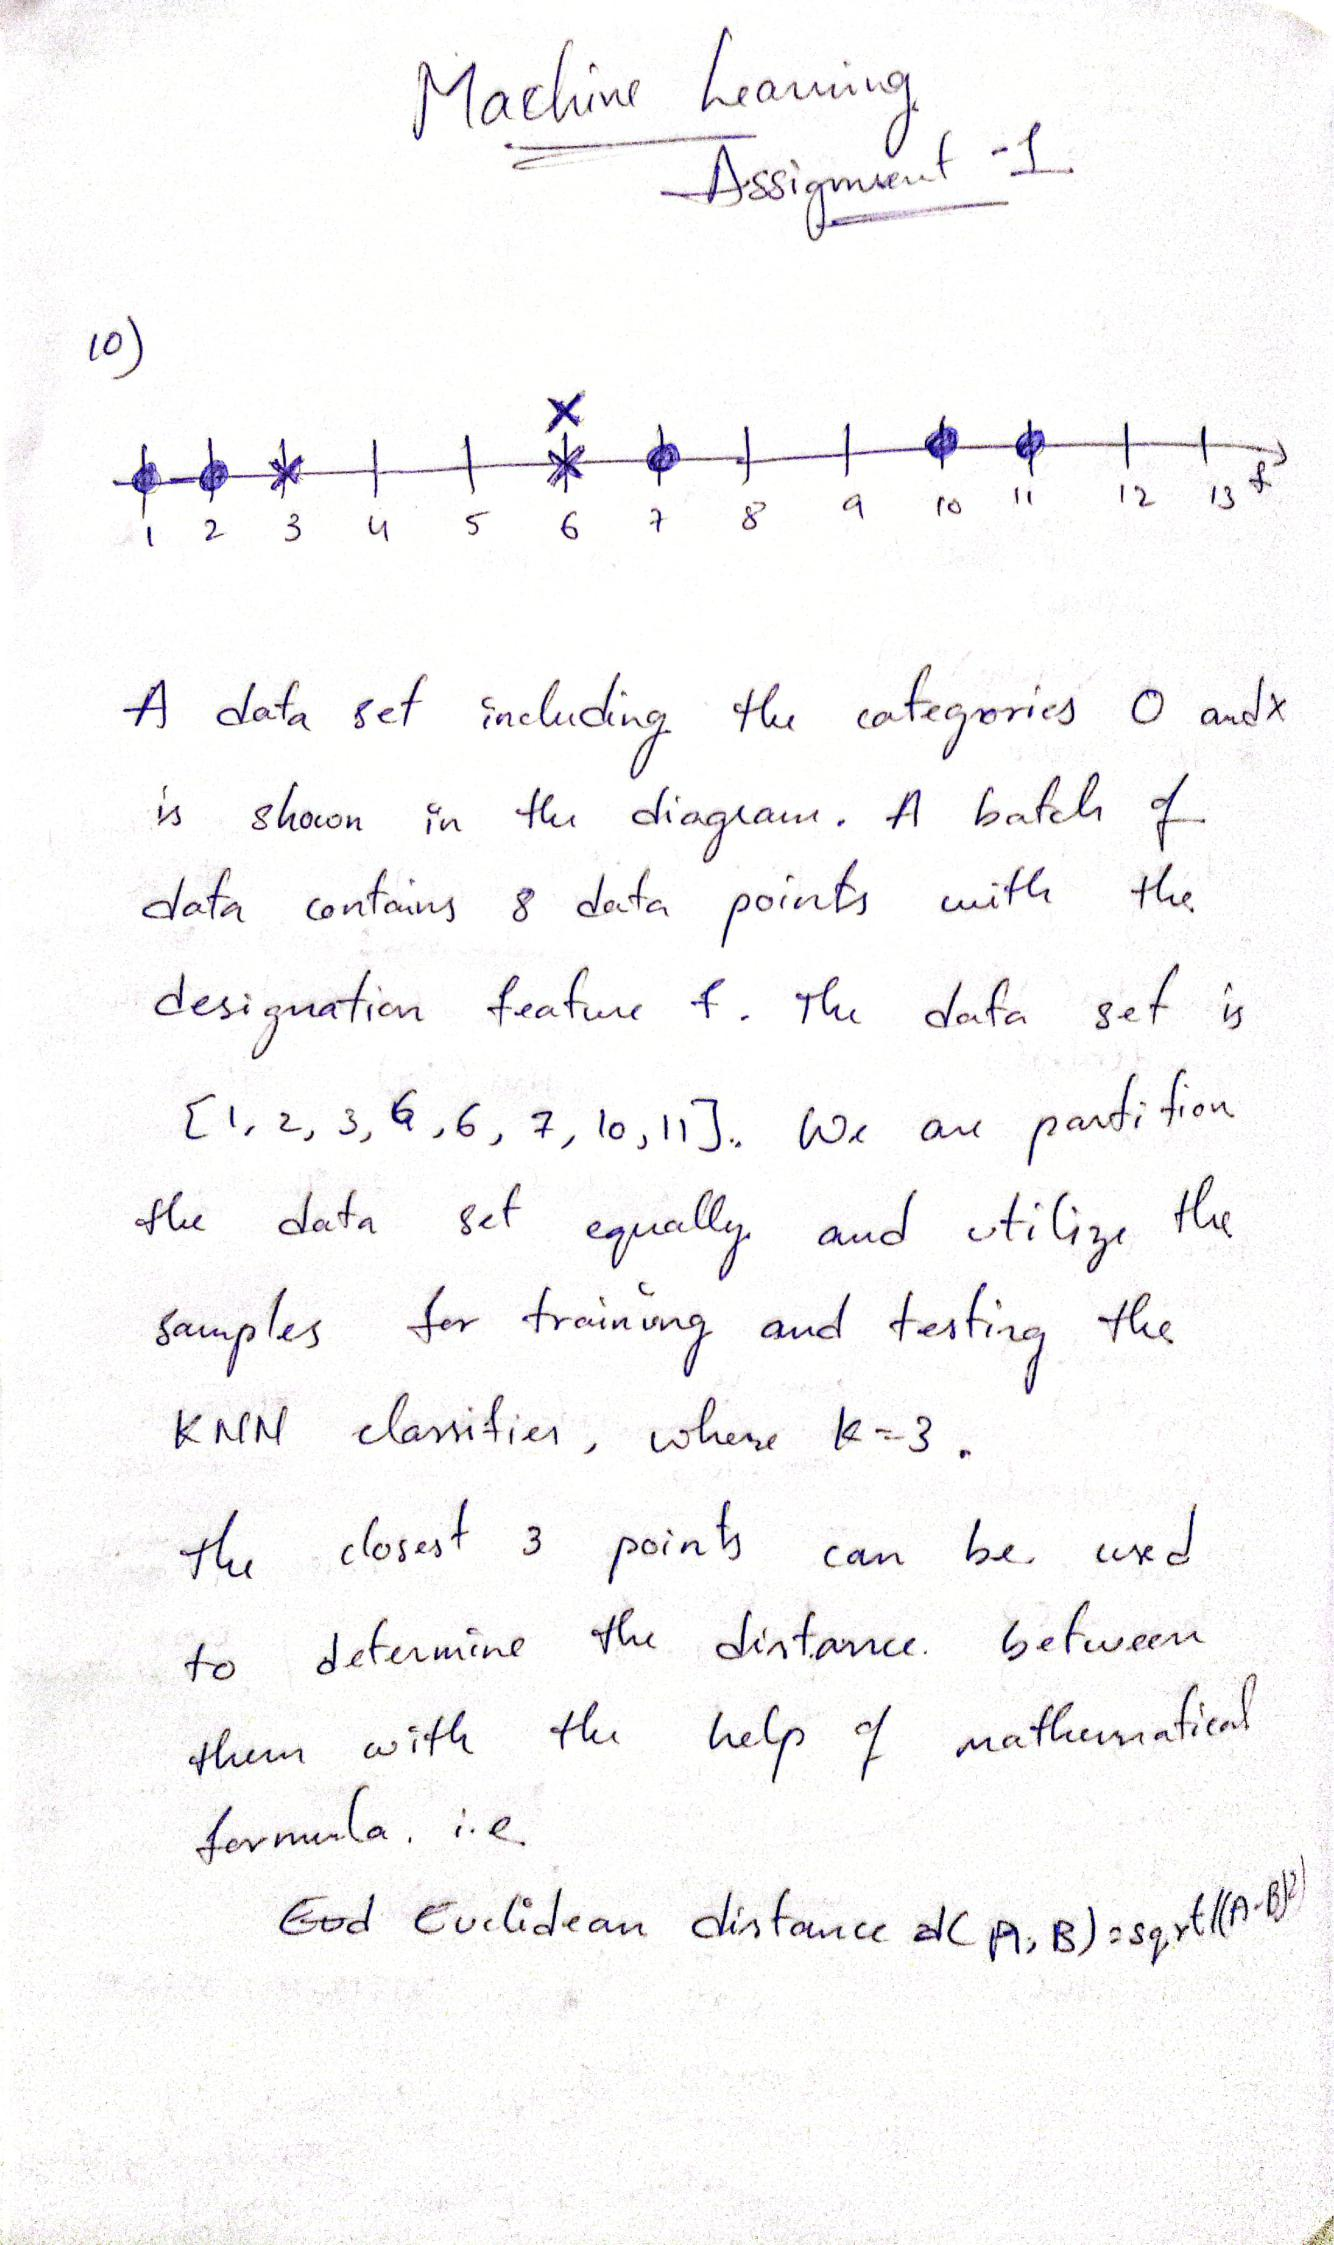 Machine Learning
Assignment -1
10)
x
1 2 3 4 5 6 7 8 9 10 11 12 13 f
A data set including the categories O and x
is shown in the diagram. A batch of
data contains 8 data points with the
designation feature f. The data set is
[1, 2, 3, 6, 6, 7, 10, 11]. We are partition
the data set equally and utilize the
samples for training and testing the
KNN classifier, where k=3.
The closest 3 points can be used
to determine the distance between
them with the help of mathematical
formula. i.e
Euclidean distance d(A, B) = sqrt((A-B)²)